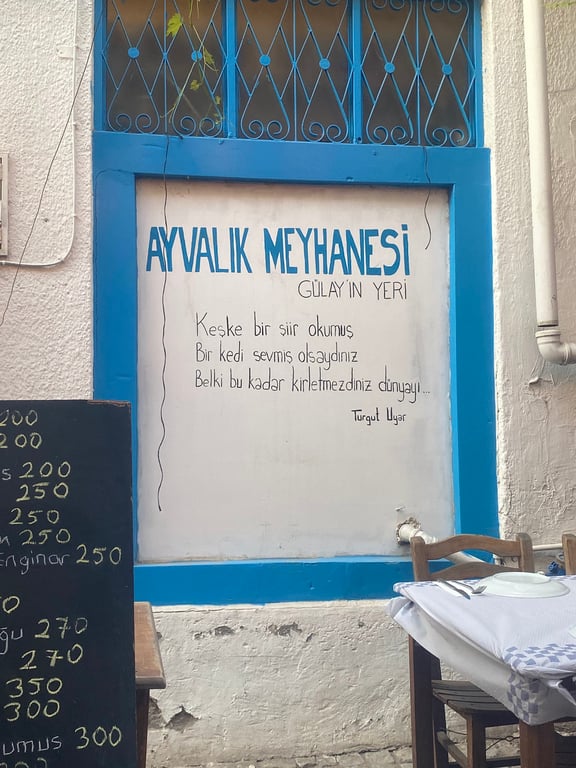 AYVALIK MEYHANESİ
GÜLAY'IN YERİ
Keşke bir şiir okumuş
Bir kedi sevmiş olsaydınız
Belki bu kadar kirletmezdiniz dünyayı...
Turgut Uyar
200
200
200
250
250
250
Enginar 250
270
270
350
300
300